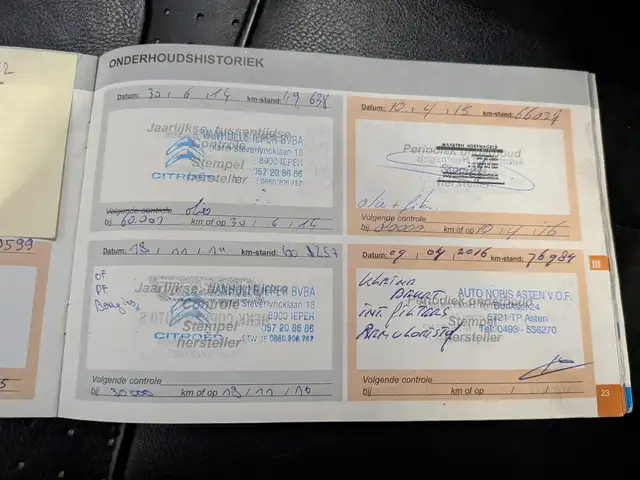 ONDERHOUDSHISTORIEK
Datum: 30 , 6 , 14 km-stand: 49 638
Jaarlijkse, tussentijdse
Controle
Stempel
hersteller
VANHOLLE IEPER BVBA
Steverlyncklaan 18
8900 IEPER
057 20 86 86
CITROËN
Volgende controle olie
bij 60.000 km of op 30 , 6 , 15
Datum: 10 , 4 , 15 km-stand: 66027
Periodiek onderhoud
Stempel
hersteller
MAARTEN
olie + filter
Volgende controle
bij km of op 10 , 4 , 16
Datum: 19 , 11 , 14 km-stand: 60
OF
PF
Bougies
Jaarlijkse
Controle
Stempel
hersteller
BVBA
Steverlyncklaan 18
8900 IEPER
057 20 86 86
BTW BE 0860.206.767
CITROËN
Volgende controle
bij 30000 km of op 19 , 11 , 16
Datum: 09 , 04 , 2016 km-stand: 76984
KLEINE
BEURT
INT. FILTERS
Periodiek onderhoud
Stempel
hersteller
AUTO NOBIS ASTEN V.O.F.
5721 TP Asten
Tel: 0493 - 536270
Volgende controle
bij km of op
III
23
0599
5